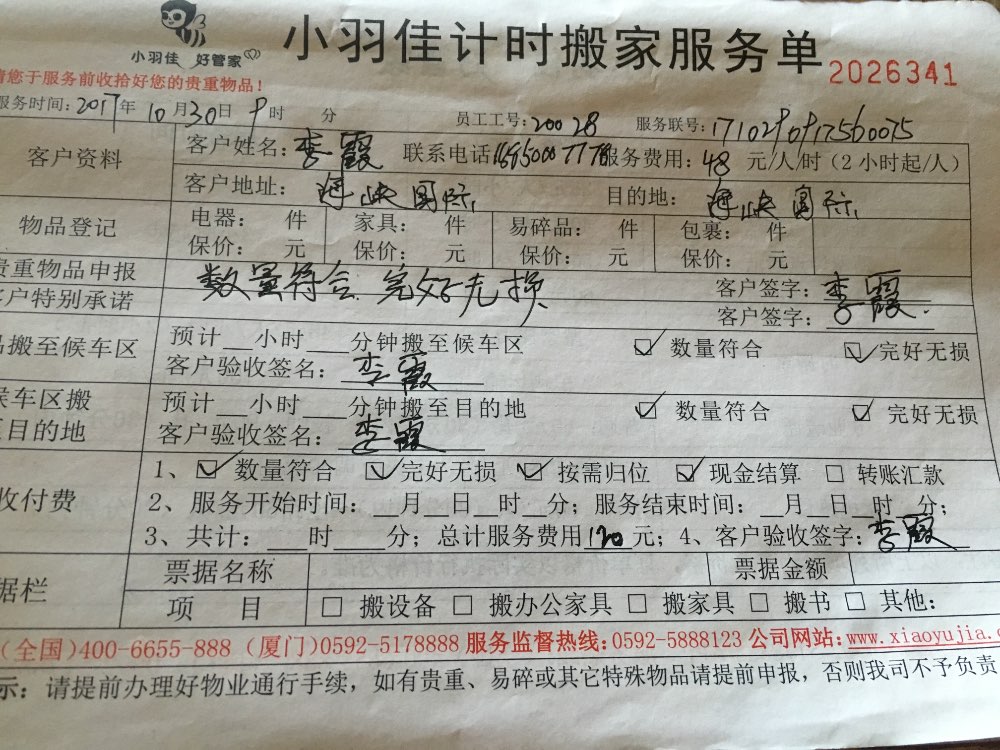 小羽佳 好管家
小羽佳计时搬家服务单 2026341
请您于服务前收拾好您的贵重物品！
服务时间：2017年10月30日9时 分 员工工号：20028 服务联号：1710290917560075
客户资料 客户姓名：李霞 联系电话 服务费用：48元/人/时（2小时起/人）
客户地址：海峡国际 目的地：海峡国际
物品登记 电器： 件 家具： 件 易碎品： 件 包裹： 件
保价： 元 保价： 元 保价： 元 保价： 元
贵重物品申报 数量符合 完好无损 客户签字：李霞
客户特别承诺 客户签字：
品搬至候车区 预计__小时___分钟搬至候车区 ☑ 数量符合 ☑ 完好无损
客户验收签名：李霞
候车区搬 预计__小时___分钟搬至目的地 ☑ 数量符合 ☑ 完好无损
至目的地 客户验收签名：李霞
收付费 1、☑ 数量符合 ☑ 完好无损 ☑ 按需归位 ☑ 现金结算 □ 转账汇款
2、服务开始时间：__月__日__时__分；服务结束时间：__月__日__时__分；
3、共计：___时___分；总计服务费用120元；4、客户验收签字：李霞
据栏 票据名称 票据金额
项 目 □ 搬设备 □ 搬办公家具 □ 搬家具 □ 搬书 □ 其他：
(全国)400-6655-888 (厦门)0592-5178888 服务监督热线：0592-5888123 公司网站：www.xiaoyujia.c
示：请提前办理好物业通行手续，如有贵重、易碎或其它特殊物品请提前申报，否则我司不予负责